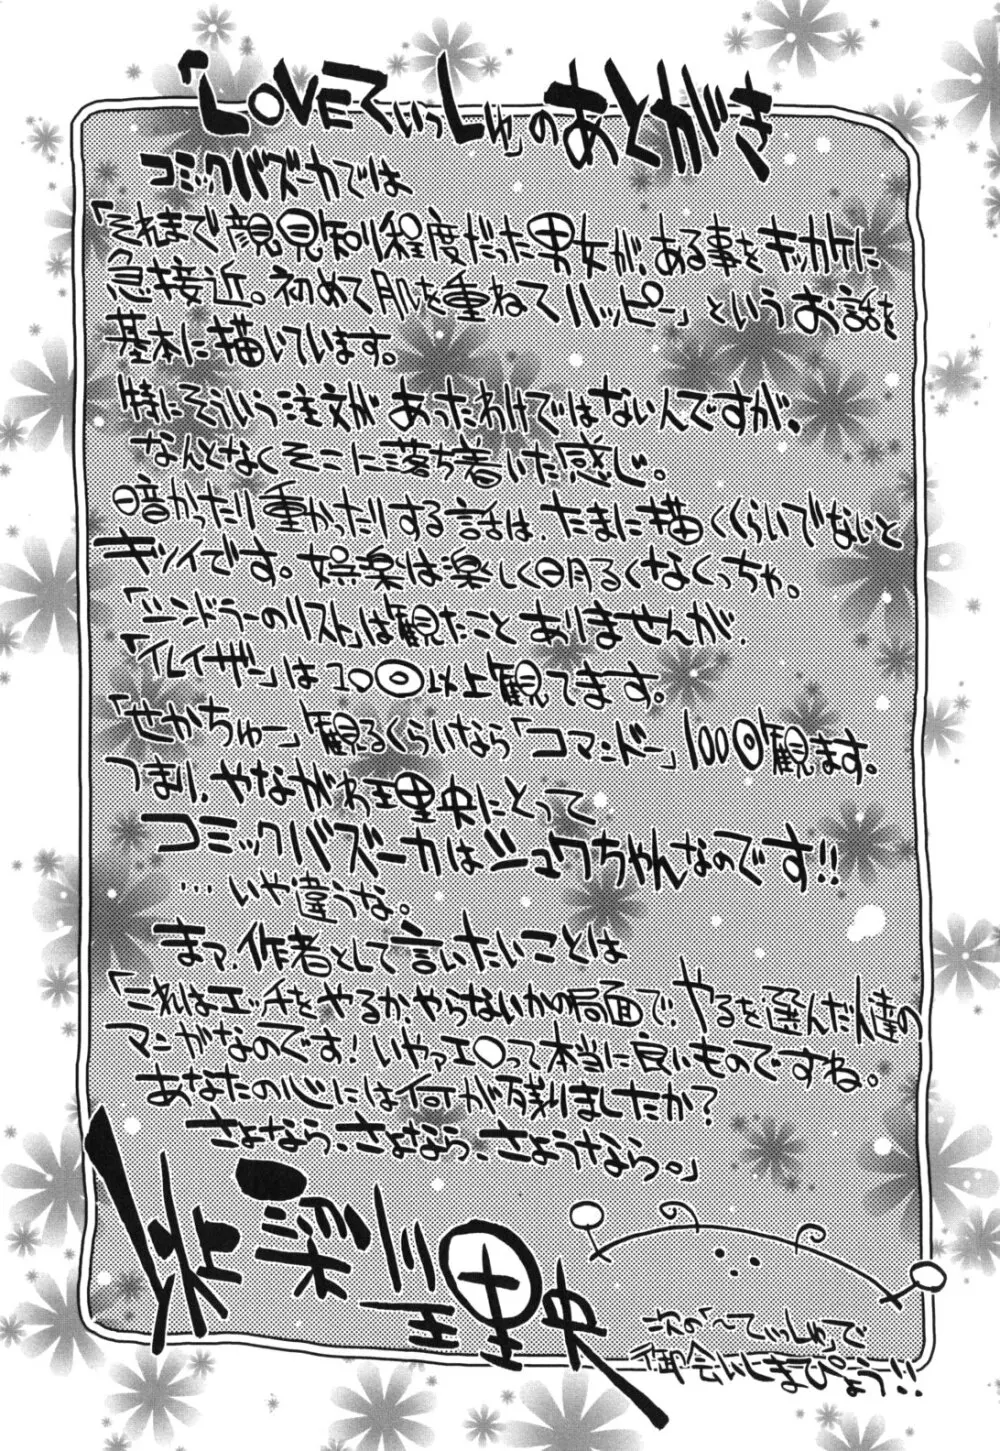 「LOVEてぃっしゅ」のあとがき
コミックバズーカでは
「それまで顔見知り程度だった男女が、ある事をキッカケに
急接近。初めて肌を重ねてハッピー」というお話を
基本に描いています。
特にそういう注文があったわけではないんですが、
なんとなくそこに落ち着いた感じ。
暗かったり重かったりする話は、たまに描くくらいでないと
キツイです。娯楽は楽しく明るくなくっちゃ。
「シンドラーのリスト」は観たことありませんが、
「イレイザー」は10回以上観てます。
「せかちゅー」観るくらいなら「コマンドー」100回観ます。
つまり、やながわ理央にとって
コミックバズーカはシュワちゃんなのです!!
…いや違うな。
まァ、作者として言いたいことは
「これはエッチをやるか、やらないかの局面で、やるを選んだ人達の
マンガなのです!いやァエロって本当に良いものですね。
あなたの心には何が残りましたか?
さよなら、さよなら、さようなら。」
理央
次の「〜てぃっしゅ」で
御会いしまぴょう!!